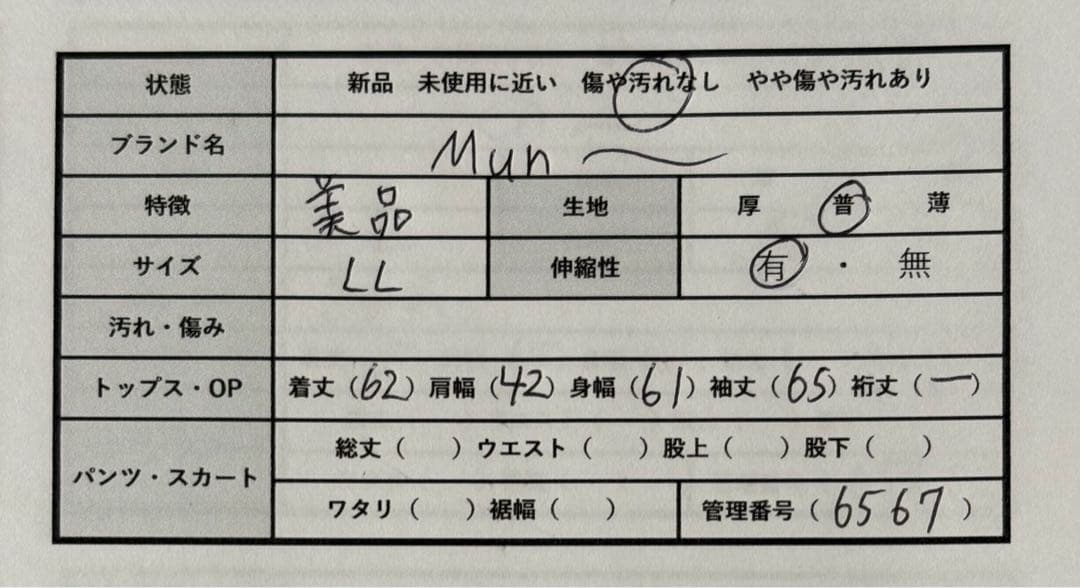 状態 新品 未使用に近い 傷や汚れなし やや傷や汚れあり
ブランド名 Mun
特徴 美品 生地 厚 普 薄
サイズ LL 伸縮性 有 ・ 無
汚れ・傷み
トップス・OP 着丈（62）肩幅（42）身幅（61）袖丈（65）裄丈（ー）
パンツ・スカート 総丈（ ）ウエスト（ ）股上（ ）股下（ ）
ワタリ（ ）裾幅（ ） 管理番号（6567）